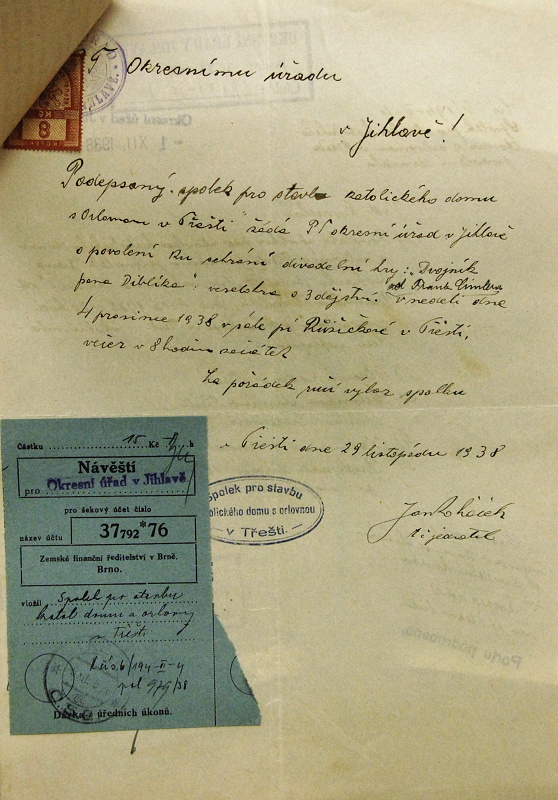 Okresnímu úřadu
v Jihlavě!
Podepsaný spolek pro stavbu katolického domu
s Orlovnou v Třešti žádá PT okresní úřad v Jihlavě
o povolení ku sehrání divadelní hry: "Dvojník
pana Diblíka" veselohra o 3 dějství. od Franka v neděli dne
4 prosince 1938 v sále pí Růžičkové v Třešti,
večer v 8 hodin začátek
Za pořádek ručí výbor spolku
v Třešti dne 29 listopadu 1938
Spolek pro stavbu
olického domu s orlovnou
v Třešti.
Jan
t. č. jednatel
8
Částku 15 Kč h
Návěští
pro Okresní úřad v Jihlavě
pro šekový účet číslo
37792*76
název účtu
Zemské finanční ředitelství v Brně.
Brno.
vložil Spolek pro stavbu
katol. domu a orlovny
v Třešti
979/38
Dávka z úředních úkonů.